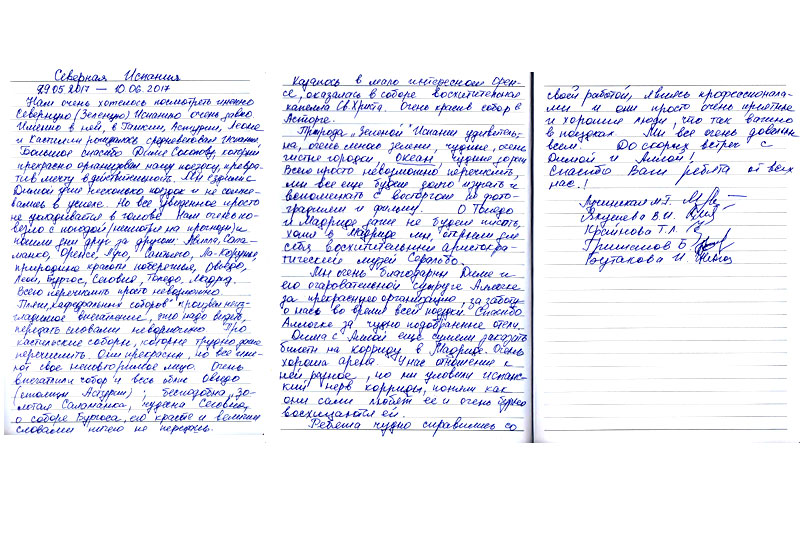 Северная Испания
29.05.2017 — 10.06.2017
Нам очень хотелось посмотреть именно
Северную (Зеленую) Испанию очень давно
Именно в ней, в Галисии, Астурии, Леоне
и Кастилии рождалась средневековая Испания.
Большое спасибо Диме, который
прекрасно организовал нашу поездку, превра-
тив мечту в действительность. Мы ездили с
Димой уже несколько поездок и не сомне-
вались в успехе. Но все увиденное просто
не укладывается в голове. Нам очень по-
везло с погодой (несмотря на прогнозы) и
пошли дни друг за другом: Авила, Сала-
манка, Оренсе, Луго, Сантьяго, Ла-Корунья,
природные красоты побережья, Овьедо,
Леон, Бургос, Сеговия, Толедо, Мадрид.
Всего перечислить просто невозможно.
Поход кафедральных соборов произвел неиз-
гладимое впечатление, это надо видеть,
передать словами невозможно. Про
кастильские соборы, которые трудно даже
перечислить. Они прекрасны, но все име-
ют свое неповторимое лицо. Очень
впечатлил собор и весь облик Овьедо
(столицы Астурии); бесподобна, зо-
лотая Саламанка, чудесна Сеговия,
о соборе Бургоса, его красоте и величии
словами ничего не передашь.
Казалось в мало интересном Орен-
се, оказалась в соборе восхитительная
капелла Св Христа. Очень красив собор в
Асторге.
Природа "Зеленой" Испании удивитель-
на, очень много зелени, чудные, очень
чистые городки, океан, чудные горы
Всего просто невозможно перечислить,
мы все еще будем долго изучать и
вспоминать с восторгом по фото-
графиям и фильму. О Толедо
и Мадриде даже не будем писать,
хотя в Мадриде мы открыли для
себя восхитительный аристокра-
тический музей Серальбо.
Мы очень благодарны Диме и
его очаровательной супруге Аллочке
за прекрасную организацию, за заботу
о нас во время всей поездки. Спасибо
Аллочке за чудно подобранные отели.
Дима с Аллой ещё сумели заказать
билеты на корриду в Мадриде. Очень
хороша арена. У нас отношение к
ней разное, но мы уловили испанс-
кий нерв корриды, поняли как
они сами любят ее и очень бурно
восхищаются ей.
Ребята чудно справились со
своей работой, явились профессионала-
ми и они просто очень приятные
и хорошие люди, что так важно
в поездках. Мы все очень довольны
всем. До скорых встреч с
Димой и Аллой!
Спасибо Вам ребята от всех
нас!
Якушева В.И.
Крайнова Т.Л.
Б.
Рогтакова И.